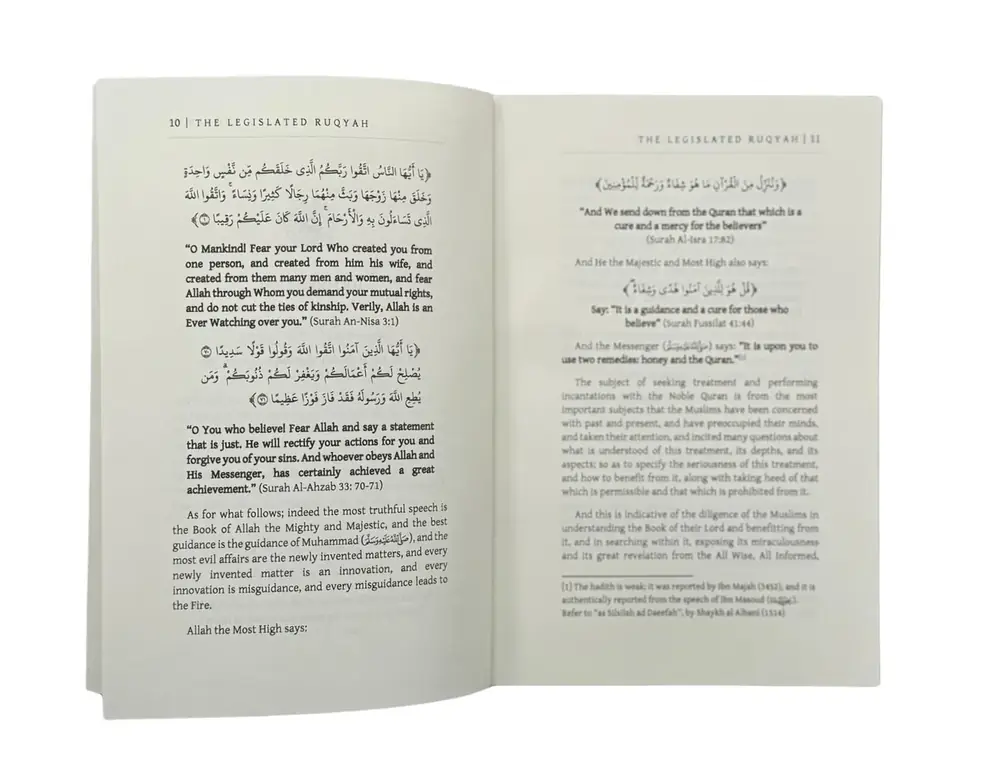 10 | THE LEGISLATED RUQYAH
﴿يَا أَيُّهَا النَّاسُ اتَّقُوا رَبَّكُمُ الَّذِي خَلَقَكُم مِّن نَّفْسٍ وَاحِدَةٍ
وَخَلَقَ مِنْهَا زَوْجَهَا وَبَثَّ مِنْهُمَا رِجَالًا كَثِيرًا وَنِسَاءً ۚ وَاتَّقُوا اللَّهَ
الَّذِي تَسَاءَلُونَ بِهِ وَالْأَرْحَامَ ۚ إِنَّ اللَّهَ كَانَ عَلَيْكُمْ رَقِيبًا ﴾
“O Mankind! Fear your Lord Who created you from
one person, and created from him his wife, and
created from them many men and women, and fear
Allah through Whom you demand your mutual rights,
and do not cut the ties of kinship. Verily, Allah is an
Ever Watching over you.” (Surah An-Nisa 3:1)
﴿يَا أَيُّهَا الَّذِينَ آمَنُوا اتَّقُوا اللَّهَ وَقُولُوا قَوْلًا سَدِيدًا
يُصْلِحْ لَكُمْ أَعْمَالَكُمْ وَيَغْفِرْ لَكُمْ ذُنُوبَكُمْ ۗ وَمَن
يُطِعِ اللَّهَ وَرَسُولَهُ فَقَدْ فَازَ فَوْزًا عَظِيمًا ﴾
“O You who believe! Fear Allah and say a statement
that is just. He will rectify your actions for you and
forgive you of your sins. And whoever obeys Allah and
His Messenger, has certainly achieved a great
achievement.” (Surah Al-Ahzab 33: 70-71)
As for what follows; indeed the most truthful speech is
the Book of Allah the Mighty and Majestic, and the best
guidance is the guidance of Muhammad (صَلَّى اللَّهُ عَلَيْهِ وَسَلَّمَ), and the
most evil affairs are the newly invented matters, and every
newly invented matter is an innovation, and every
innovation is misguidance, and every misguidance leads to
the Fire.
Allah the Most High says:
THE LEGISLATED RUQYAH | 11
﴿وَنُنَزِّلُ مِنَ الْقُرْآنِ مَا هُوَ شِفَاءٌ وَرَحْمَةٌ لِّلْمُؤْمِنِينَ﴾
“And We send down from the Quran that which is a
cure and a mercy for the believers”
(Surah Al-Isra 17:82)
And He the Majestic and Most High also says:
﴿قُلْ هُوَ لِلَّذِينَ آمَنُوا هُدًى وَشِفَاءٌ ۖ﴾
Say: “It is a guidance and a cure for those who
believe” (Surah Fussilat 41:44)
And the Messenger (صَلَّى اللَّهُ عَلَيْهِ وَسَلَّمَ) says: “It is upon you to
use two remedies: honey and the Quran.”[1]
The subject of seeking treatment and performing
incantations with the Noble Quran is from the most
important subjects that the Muslims have been concerned
with past and present, and have preoccupied their minds,
and taken their attention, and incited many questions about
what is understood of this treatment, its depths, and its
aspects; so as to specify the seriousness of this treatment,
and how to benefit from it, along with taking heed of that
which is permissible and that which is prohibited from it.
And this is indicative of the diligence of the Muslims in
understanding the Book of their Lord and benefitting from
it, and in searching within it, exposing its miraculousness
and its great revelation from the All Wise, All Informed,
[1] The hadith is weak; it was reported by Ibn Majah (3452), and it is
authentically reported from the speech of Ibn Masoud
Refer to “as Silsilah ad Daeefah”, by Shaykh al Albani (1514)